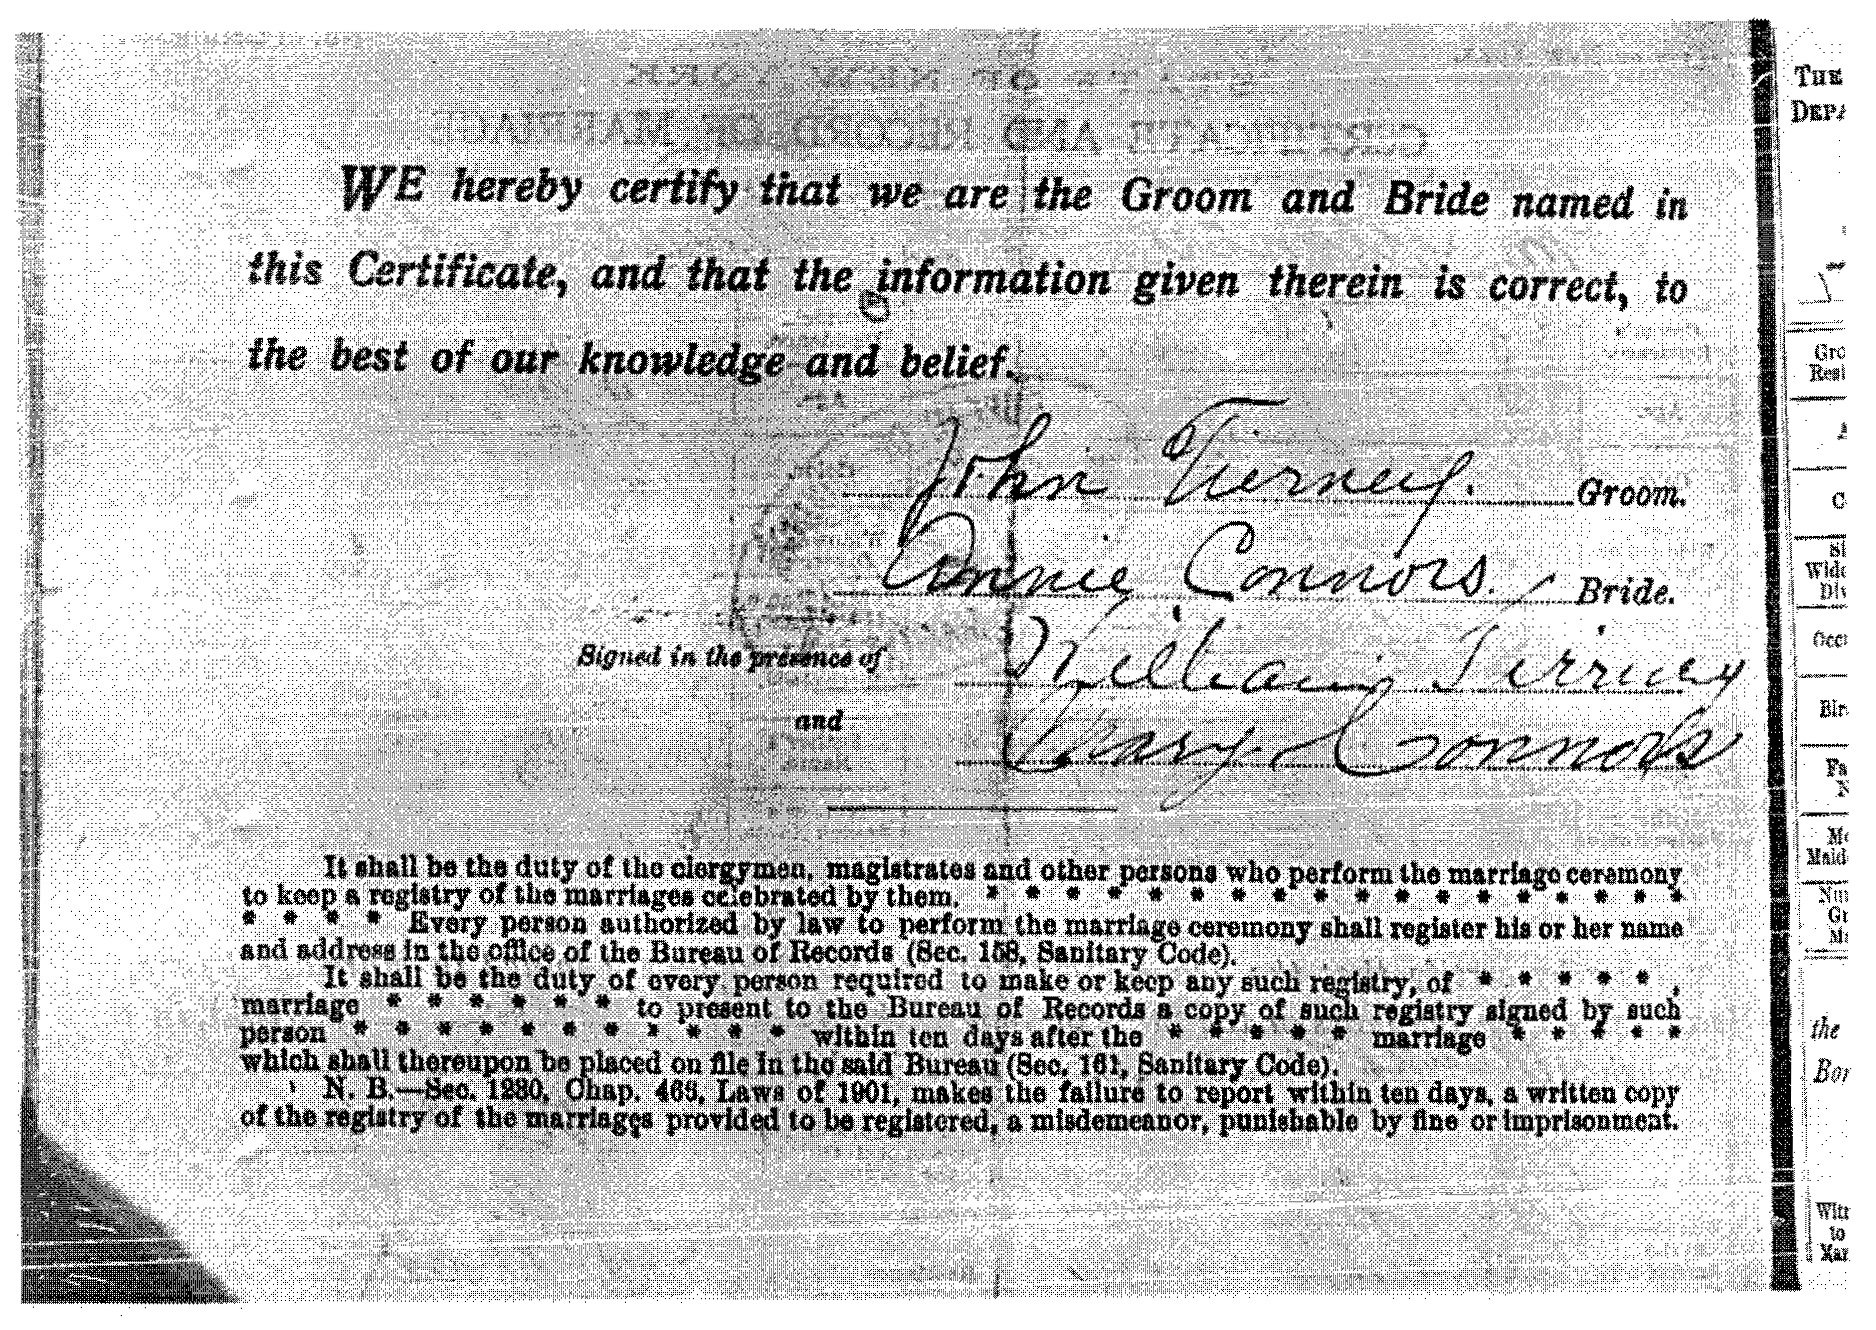 WE hereby certify that we are the Groom and Bride named in
this Certificate, and that the information given therein is correct, to
the best of our knowledge and belief.
John Tierney. Groom.
Annie Connors. Bride.
Signed in the presence of William Tierney
and Mary Connors
It shall be the duty of the clergymen, magistrates and other persons who perform the marriage ceremony
to keep a registry of the marriages celebrated by them. * * * * * * * * * * * * * * * * * *
* * * * Every person authorized by law to perform the marriage ceremony shall register his or her name
and address in the office of the Bureau of Records (Sec. 158, Sanitary Code).
It shall be the duty of every person required to make or keep any such registry, of * * * * * ,
marriage * * * * * * to present to the Bureau of Records a copy of such registry signed by such
person * * * * * * * * * * * within ten days after the * * * * * marriage * * * * *
which shall thereupon be placed on file in the said Bureau (Sec. 161, Sanitary Code).
N. B.—Sec. 1280, Chap. 466, Laws of 1901, makes the failure to report within ten days, a written copy
of the registry of the marriages provided to be registered, a misdemeanor, punishable by fine or imprisonment.
THE
the